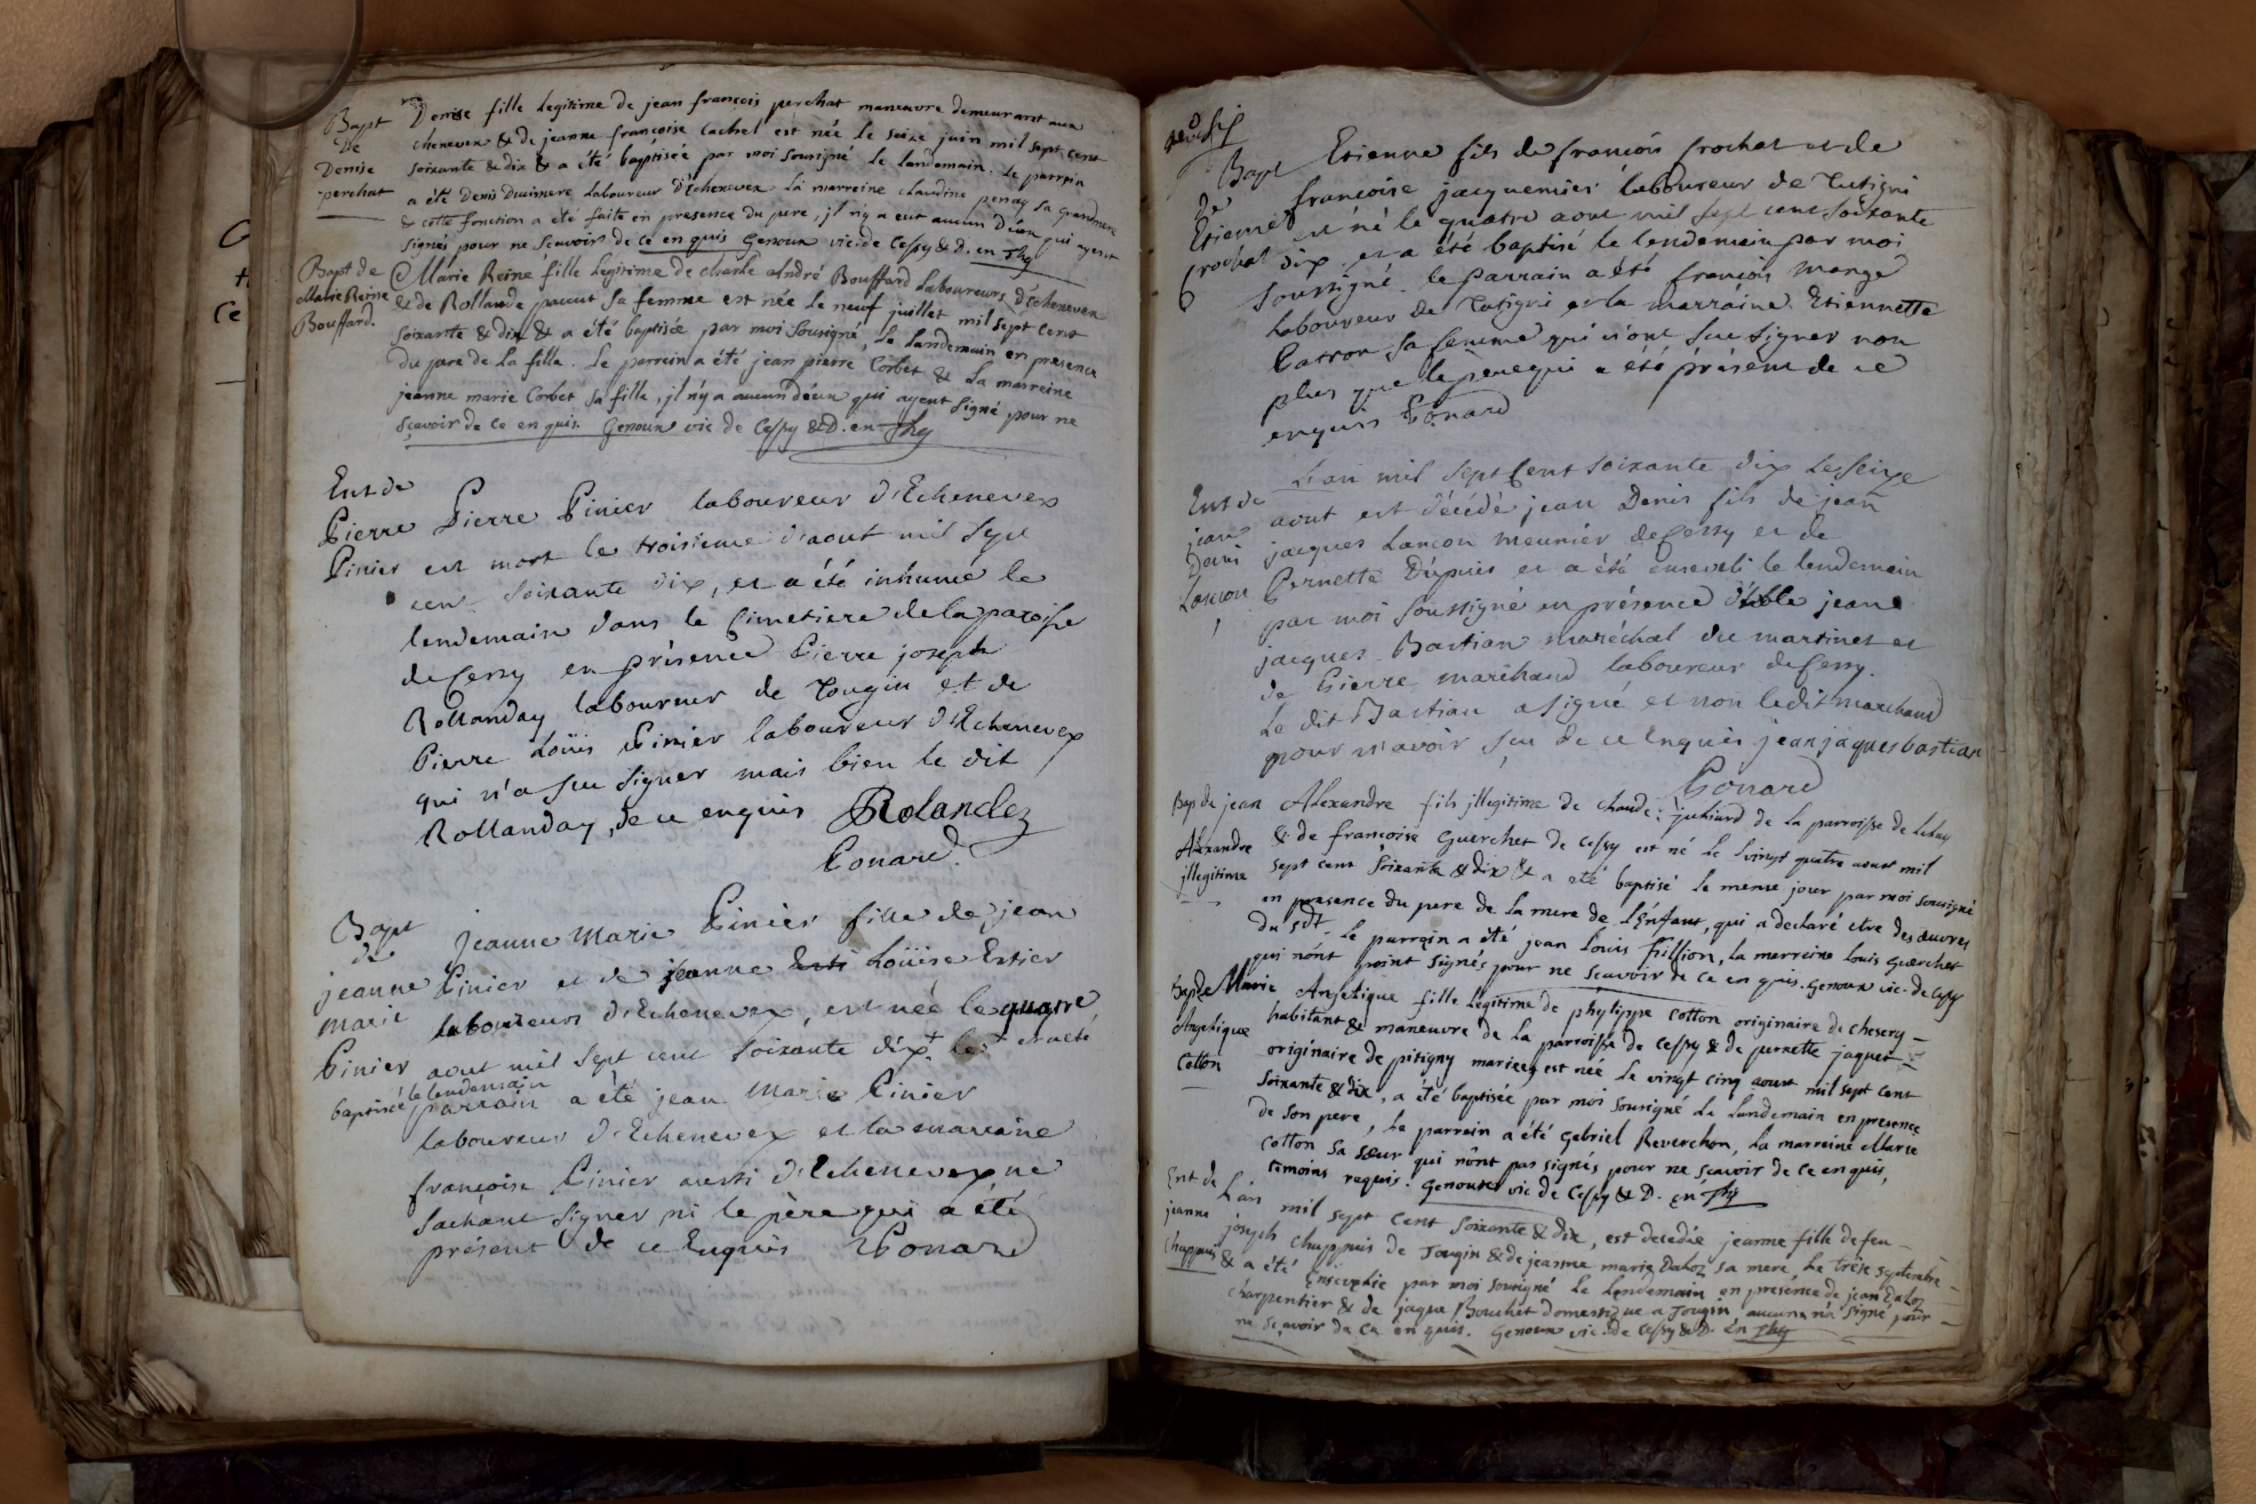 Bapt
de
Denise
perchat
Denise fille legitime de jean françois perchat manœuvre demeurant aux
chenevex & de jeanne françoise Cachel est née le seize juin mil sept cent
soixante & dix & a été baptisée par moi sousigné le landemain. Le parrein
a été Denis Duimere laboureur d'Echenevex la marreine claudine penay sa grandmere
& cette fonction a été faite en presence du pere, jl n'y a eut aucun d'eux qui ayent
signés pour ne scavoirs de ce en quis Genoux vic. de Cessy & D. en Thg
Bapt de
Marie Reine
Bouffard.
Marie Reine fille legitime de charle André Bouffard Laboureurs d'Echenevex
& de Rollande pauut sa femme est née le neuf juillet mil sept cent
soixante & dix & a été baptisée par moi sousigné, le landemain en presence
du pere de la fille. Le parrein a été jean pierre Corbet & la marreine
jeanne marie Corbet sa fille, jl n'y a aucun d'eux qui ayent signé pour ne
sçavoir de ce en quis. Genoux vic de Cessy & D. en Thg
Ent de
Pierre
Pinier
Pierre Pinier laboureur d'Echenevex
est mort le troisieme d'aout mil sept
cent soixante dix, et a été inhumé le
lendemain dans le cimetiere de la paroisse
de Cessy en présence Pierre joseph
Rollanday laboureur de Tougin et de
Pierre Loüis Pinier laboureur d'Echenevex
qui n'a sçu signer mais bien le dit
Rollanday, de ce enquis Rolandez
Gonard.
Bapt
de
jeanne
marie
Pinier
jeanne Marie Pinier fille de jean
Pinier et de jeanne Esti Loüise Estier
laboureurs d'Echenevex, est née le quatre
aout mil sept cent soixante dix. le et a été
baptisée le lendemain
parrain a été jean Marie Pinier
laboureur d'Echenevex et la marraine
françoise Pinier aussi d'Echenevex ne
sachant signer ni le père qui a été
présent de ce Enquis Gonard
Bapt
de
Etienne
Crochat
Etienne fils de françois Crochat et de
françoise jacquemier laboureur de Tutigni
est né le quatre aout mil sept cent soixante
dix et a été baptisé le lendemain par moi
soussigné. le parrain a été françois Monge
laboureur de Tutigni et la marraine Etiennette
Patron sa femme qui n'ont sçu signer non
plus que le père qui a été présent de ce
enquis Gonard
Ent de
jean
Denis
Lancon
L'an mil sept cent soixante dix le seize
aout est décédé jean Denis fils de jean
jacques Lancon meunier de Cessy et de
Pernette Dupuis et a été enseveli le lendemain
par moi soussigné en présence d'hble jean
jacques Bastian maréchal du martinet et
de Pierre marchand laboureur de Cessy.
Le dit Bastian a signé et non ledit marchand
pour n'avoir sçu de ce Enquis jean jaques bastian
Gonard
Bap de jean
Alexandre
jllegitime
Alexandre fils jllegitime de claude juliard de la parroisse de
& de françoise Guerchet de Cessy est né le vingt quatre aoust mil
sept cent soixante & dix & a été baptisé le meme jour par moi sousigné
en presence du pere de la mere de l'Enfant, qui a declaré etre des œuvres
du sdt. le parrein a été jean Louis frillion, la marreine Louis Guerchet
qui n'ont point signés pour ne scavoir de ce en quis. Genoux vic. de Cessy
Bap de Marie
Angelique
Cotton
Angelique fille legitime de phylippe Cotton originaire de chesery
habitant & maneuvre de la parroisse de Cessy & de pernette jaquet
originaire de pitigny mariees est née le vingt cinq aoust mil sept cent
soixante & dix, a été baptisée par moi sousigné le landemain en presence
de son pere, le parrein a été Gabriel Reverchon, la marreine Marie
Cotton sa sœur qui n'ont pas signés pour ne scavoir de ce en quis,
temoins requis. Genoux vic de Cessy & D. en Thg
Ent de
jeanne
Chappuis
L'an mil sept cent soixante & dix, est decedée jeanne fille de feu
joseph Chappuis de Tougin & de jeanne marie Daloz sa mere, le treise septembre
& a été Ensevelie par moi sousigné le landemain en presence de jean Daloz
charpentier & de jaque Bouchet domestique a Tougin aucuns n'a signé pour
ne sçavoir de ce en quis. Genoux vic. de Cessy & D. En Thg